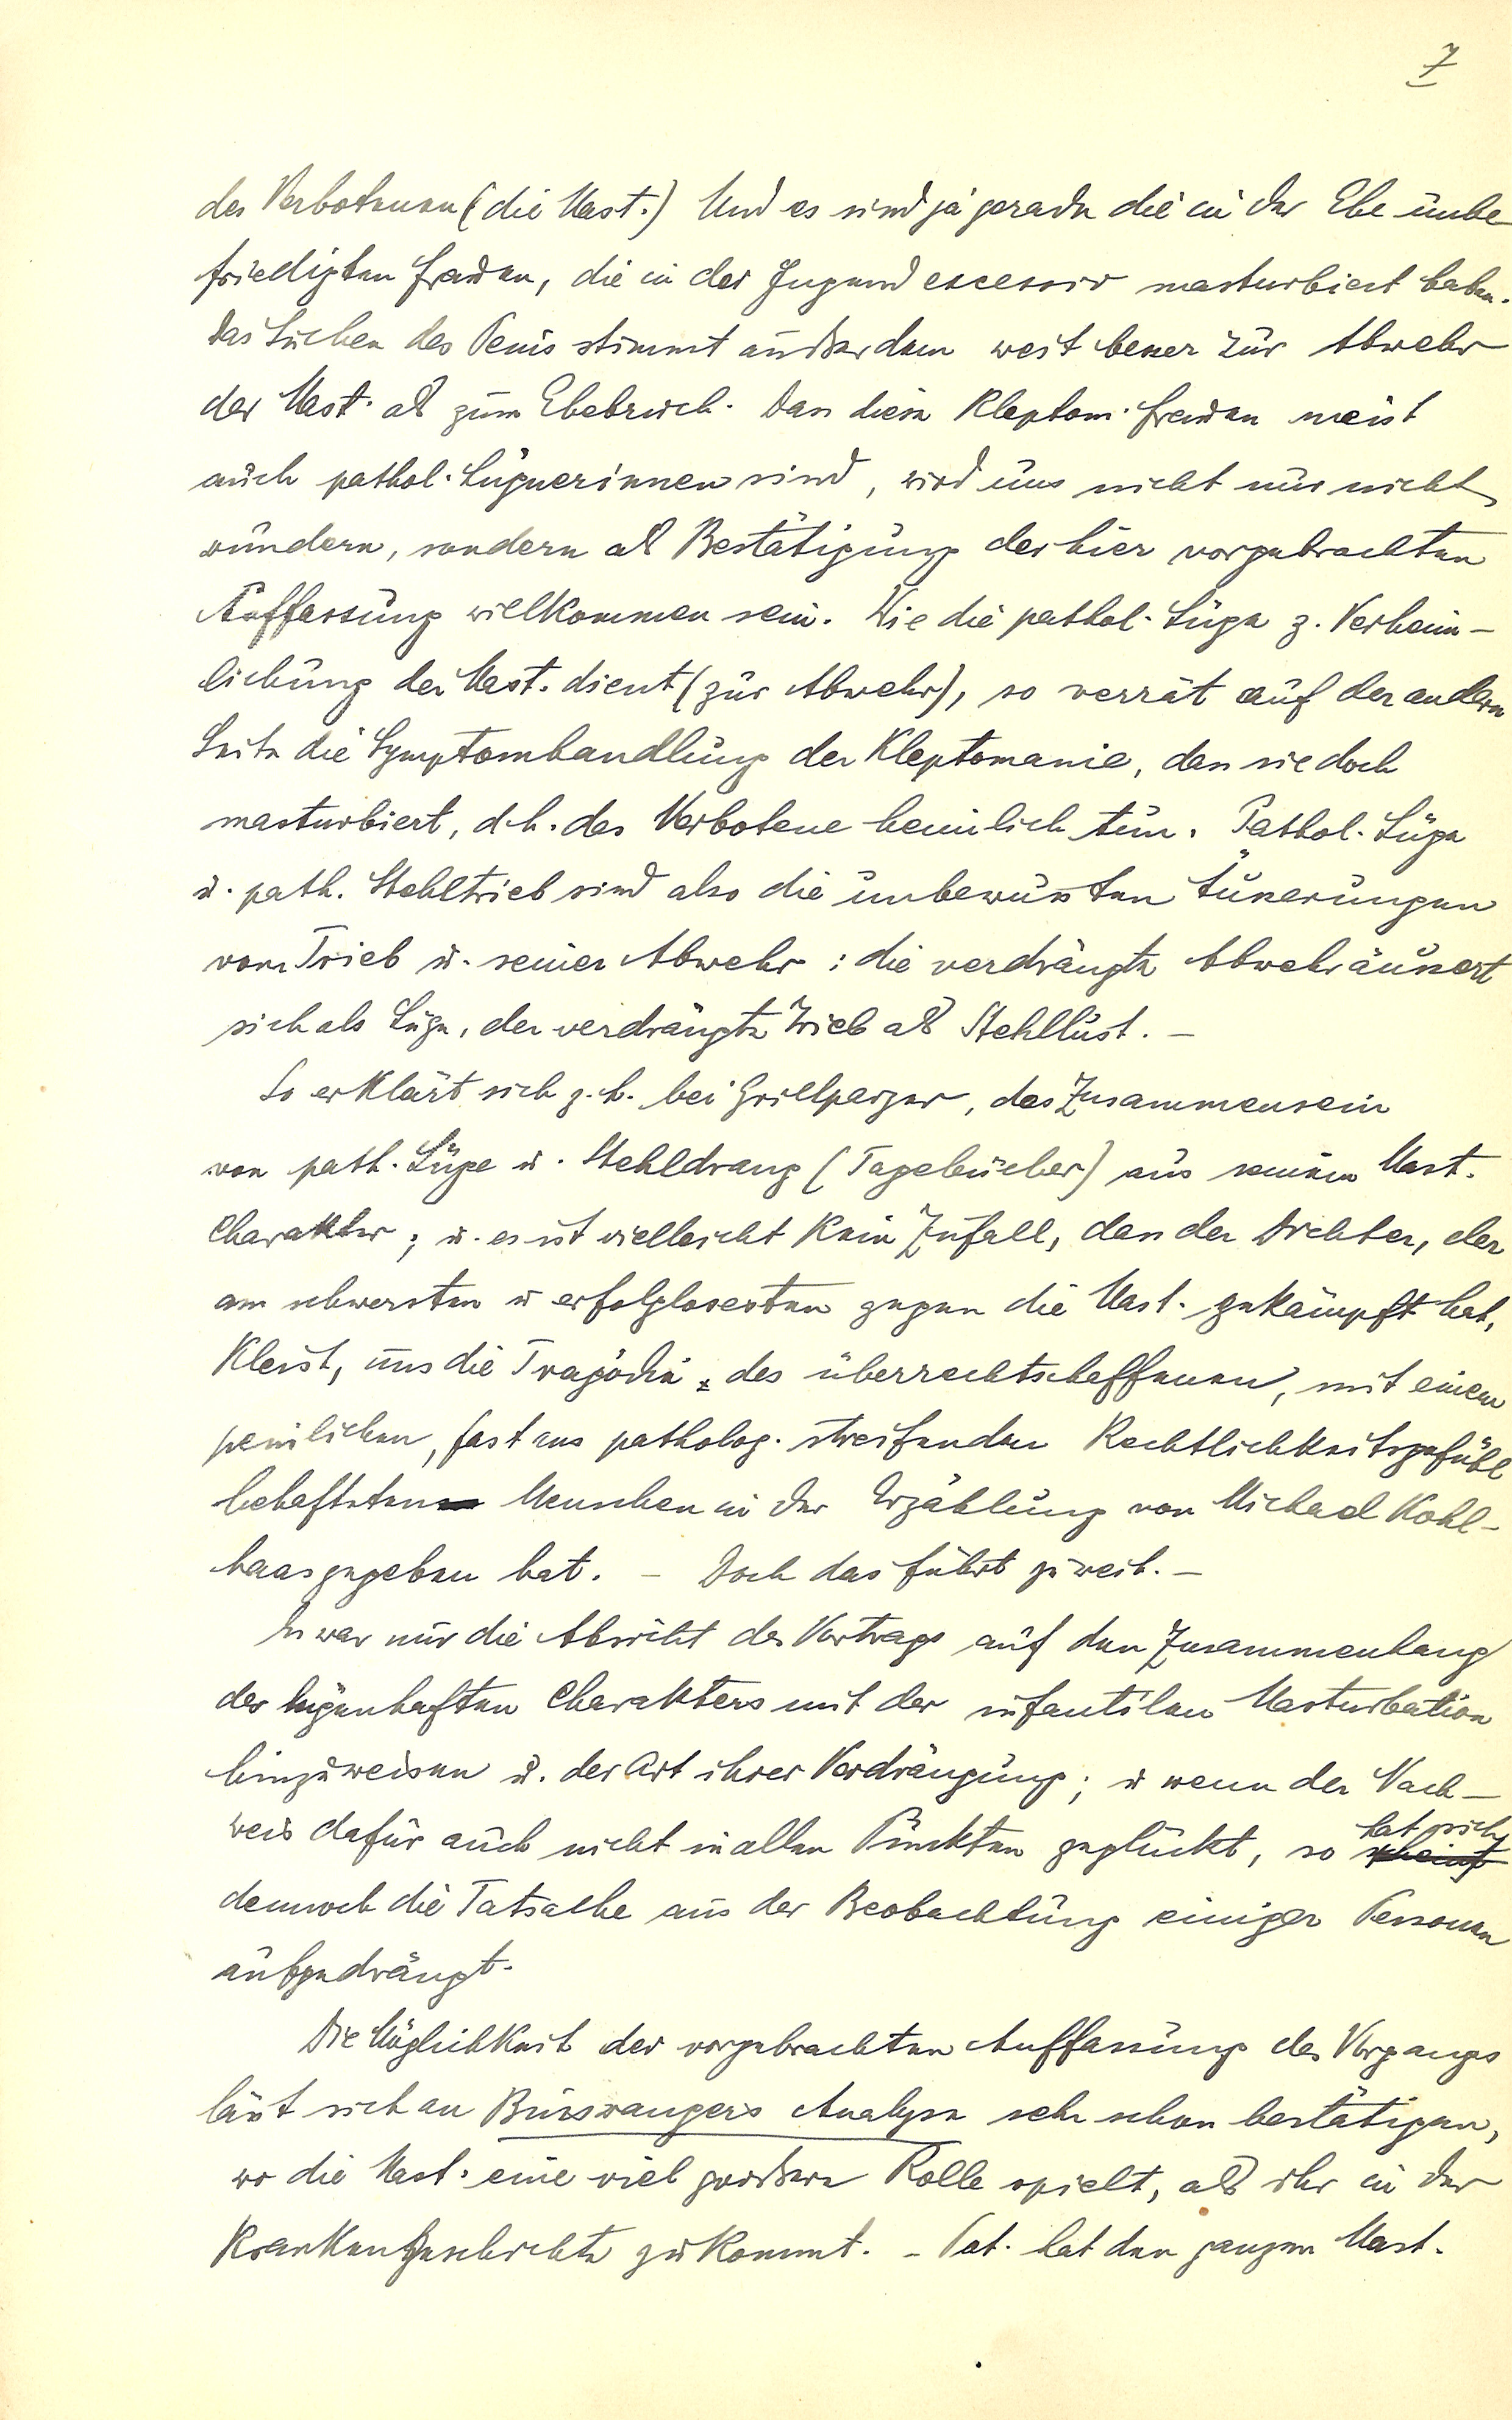 7
des Verbotenen (die Mast.) Und es sind ja gerade die in der Ehe unbe
friedigten Frauen, die in der Jugend excessiv masturbiert haben.
Das Suchen des Penis stimmt außerdem weit besser zur Abwehr
der Mast. als zum Ehebruch. Dass diese Kleptom. Frauen meist
auch pathol. Lügnerinnen sind, wird uns nicht nur nicht
wundern, sondern als Bestätigung der hier vorgebrachten
Auffassung willkommen sein. Wie die pathol. Lüge z. Verheim-
lichung der Mast. dient (zur Abwehr), so verrät auf der andern
Seite die Symptomhandlung der Kleptomanie, dass sie doch
masturbiert, d.h. das Verbotene heimlich tun. Pathol. Lüge
u. path. Stehltrieb sind also die unbewussten Äusserungen
vom Trieb u. seiner Abwehr: die verdrängte Abwehr äussert
sich als Lüge, der verdrängte Trieb als Stehllust. –
So erklärt sich z.b. bei Grillparzer, das Zusammensein
von path. Lüge u. Stehldrang (Tagebücher) aus seinem Mast.
Charakter; u. es ist vielleicht kein Zufall, dass der Dichter, der
am schwersten u erfolglosesten gegen die Mast. gekämpft hat,
Kleist, uns die Tragödie des überrechtschaffenen, mit einem
peinlichen, fast ans patholog. streifenden Rechtlichkeitsgefühl
behafteten Menschen in der Erzählung von Michael Kohl-
haas gegeben hat. – Doch das führt zu weit. –
Es war nur die Absicht des Vortrags auf den Zusammenhang
des lügenhaften Charakters mit der infantilen Masturbation
hinzuweisen u. der Art ihrer Verdrängung; u wenn der Nach-
weis dafür auch nicht in allen Punkten geglückt, so scheint hat sich
dennoch die Tatsache aus der Beobachtung einiger Personen
aufgedrängt.
Die Möglichkeit der vorgebrachten Auffassung des Vorgangs
lässt sich an Binswangers Analyse sehr schon bestätigen,
wo die Mast. eine viel grössere Rolle spielt, als ihr in der
Krankengeschichte zukommt. – Pat. hat den ganzen Mast.